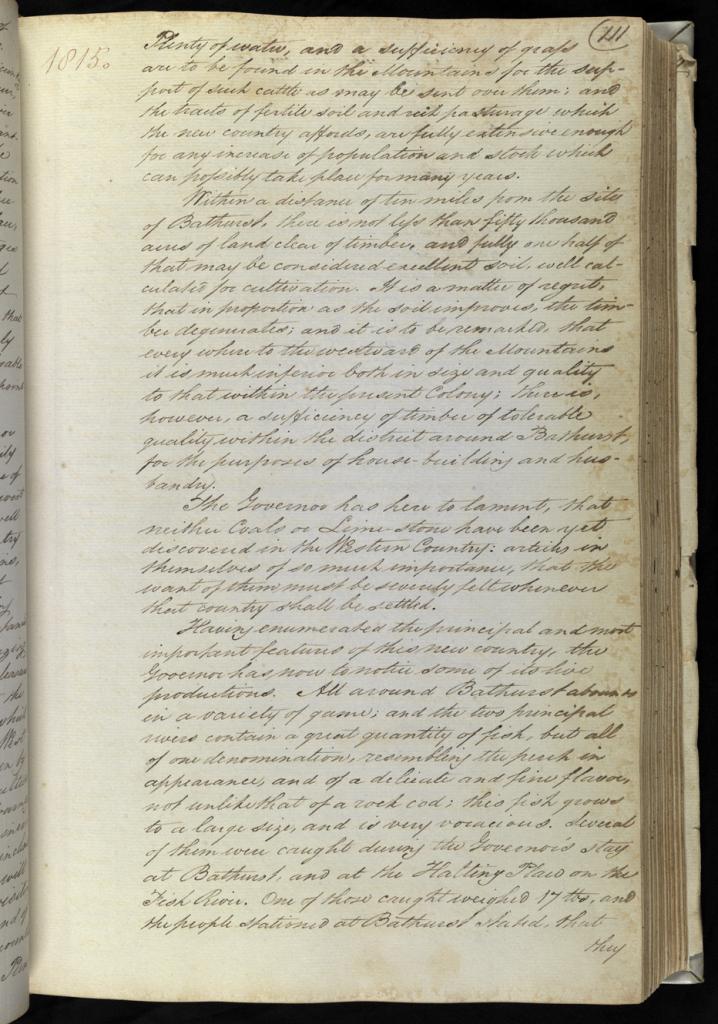 1815.
141
Plenty of water, and a sufficiency of grass
are to be found in the Mountains for the sup-
port of such cattle as may be sent over them; and
the tracts of fertile soil and rich pasturage which
the new country affords, are fully extensive enough
for any increase of population and stock which
can possibly take place for many years.
Within a distance of ten miles from the site
of Bathurst, there is not less than fifty thousand
acres of land clear of timber, and fully one half of
that may be considered excellent soil, well cal-
culated for cultivation. It is a matter of regret,
that in proportion as the soil improves, the tim-
ber degenerates; and it is to be remarked, that
every where to the westward of the Mountains
it is much inferior both in size and quality
to that within the present Colony; there is,
however, a sufficiency of timber of tolerable
quality within the district around Bathurst,
for the purposes of house-building and hus-
bandry.
The Governor has here to lament, that
neither Coals or Lime-stone have been yet
discovered in the Western Country: articles in
themselves of so much importance, that the
want of them must be severely felt whenever
that country shall be settled.
Having enumerated the principal and most
important features of this new country, the
Governor has now to notice some of its live
productions. All around Bathurst abounds
in a variety of game; and the two principal
rivers contain a great quantity of fish, but all
of one denomination, resembling the perch in
appearance, and of a delicate and fine flavor,
not unlike that of a rock cod; this fish grows
to a large size, and is very voracious. Several
of them were caught during the Governor's stay
at Bathurst, and at the Halting Place on the
Fish River. One of those caught weighed 17 lbs, and
the people stationed at Bathurst stated, that
they